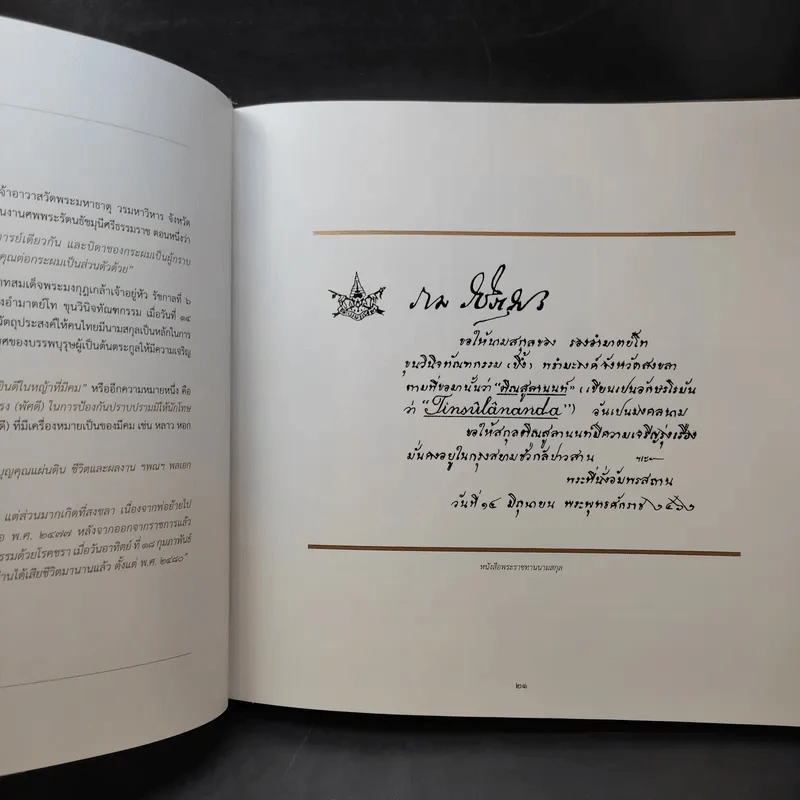 จ้าอาวาสวัดพระมหาธาตุ วรมหาวิหาร จังหวัด
นงานศพพระรัตนธัชมุนีศรีธรรมราช ตอนหนึ่งว่า
ารย์เดียวกัน และบิดาของกระผมเป็นผู้กราบ
คุณต่อกระผมเป็นส่วนตัวด้วย"
าทสมเด็จพระมงกุฎเกล้าเจ้าอยู่หัว รัชกาลที่ ๖
งอำมาตย์โท ขุนวินิจทัณฑกรรม เมื่อวันที่ ๑๔
วัตถุประสงค์ให้คนไทยมีนามสกุลเป็นหลักในการ
ศของบรรพบุรุษผู้เป็นต้นตระกูลให้มีความเจริญ
ยินดีในหญ้าที่มีคม" หรืออีกความหมายหนึ่ง คือ
รง (พัศดี) ในการป้องกันปราบปรามมิให้นักโทษ
ดี) ที่มีเครื่องหมายเป็นของมีคม เช่น หลาว หอก
บุญคุณแผ่นดิน ชีวิตและผลงาน ฯพณฯ พลเอก
แต่ส่วนมากเกิดที่สงขลา เนื่องจากพ่อย้ายไป
อ พ.ศ. ๒๔๗๗ หลังจากออกจากราชการแล้ว
รรมด้วยโรคชรา เมื่อวันอาทิตย์ ที่ ๑๘ กุมภาพันธ์
านได้เสียชีวิตมานานแล้ว ตั้งแต่ พ.ศ. ๒๔๘๐"
ราม
ขอให้นามสกุลของ รองอำมาตย์โท
ขุนวินิจทัณฑกรรม (บึ้ง) พธำมะรงค์จังหวัดสงขลา
ตามที่ขอมานั้นว่า "ติณสูลานนท์" (เขียนเป็นอักษรโรมัน
ว่า "Tinsūlānanda") อันเป็นมงคลนาม
ขอให้สกุลติณสูลานนท์มีความเจริญรุ่งเรือง
มั่นคงอยู่ในกรุงสยามชั่วกัลปาวสาน
พระที่นั่งอัมพรสถาน
วันที่ ๑๔ มิถุนายน พระพุทธศักราช ๒๔๖๒
หนังสือพระราชทานนามสกุล
๒๑